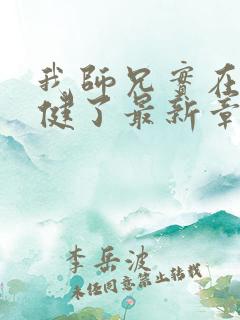 我师兄实在
健了最新章
李岳波
未经同意禁止转载